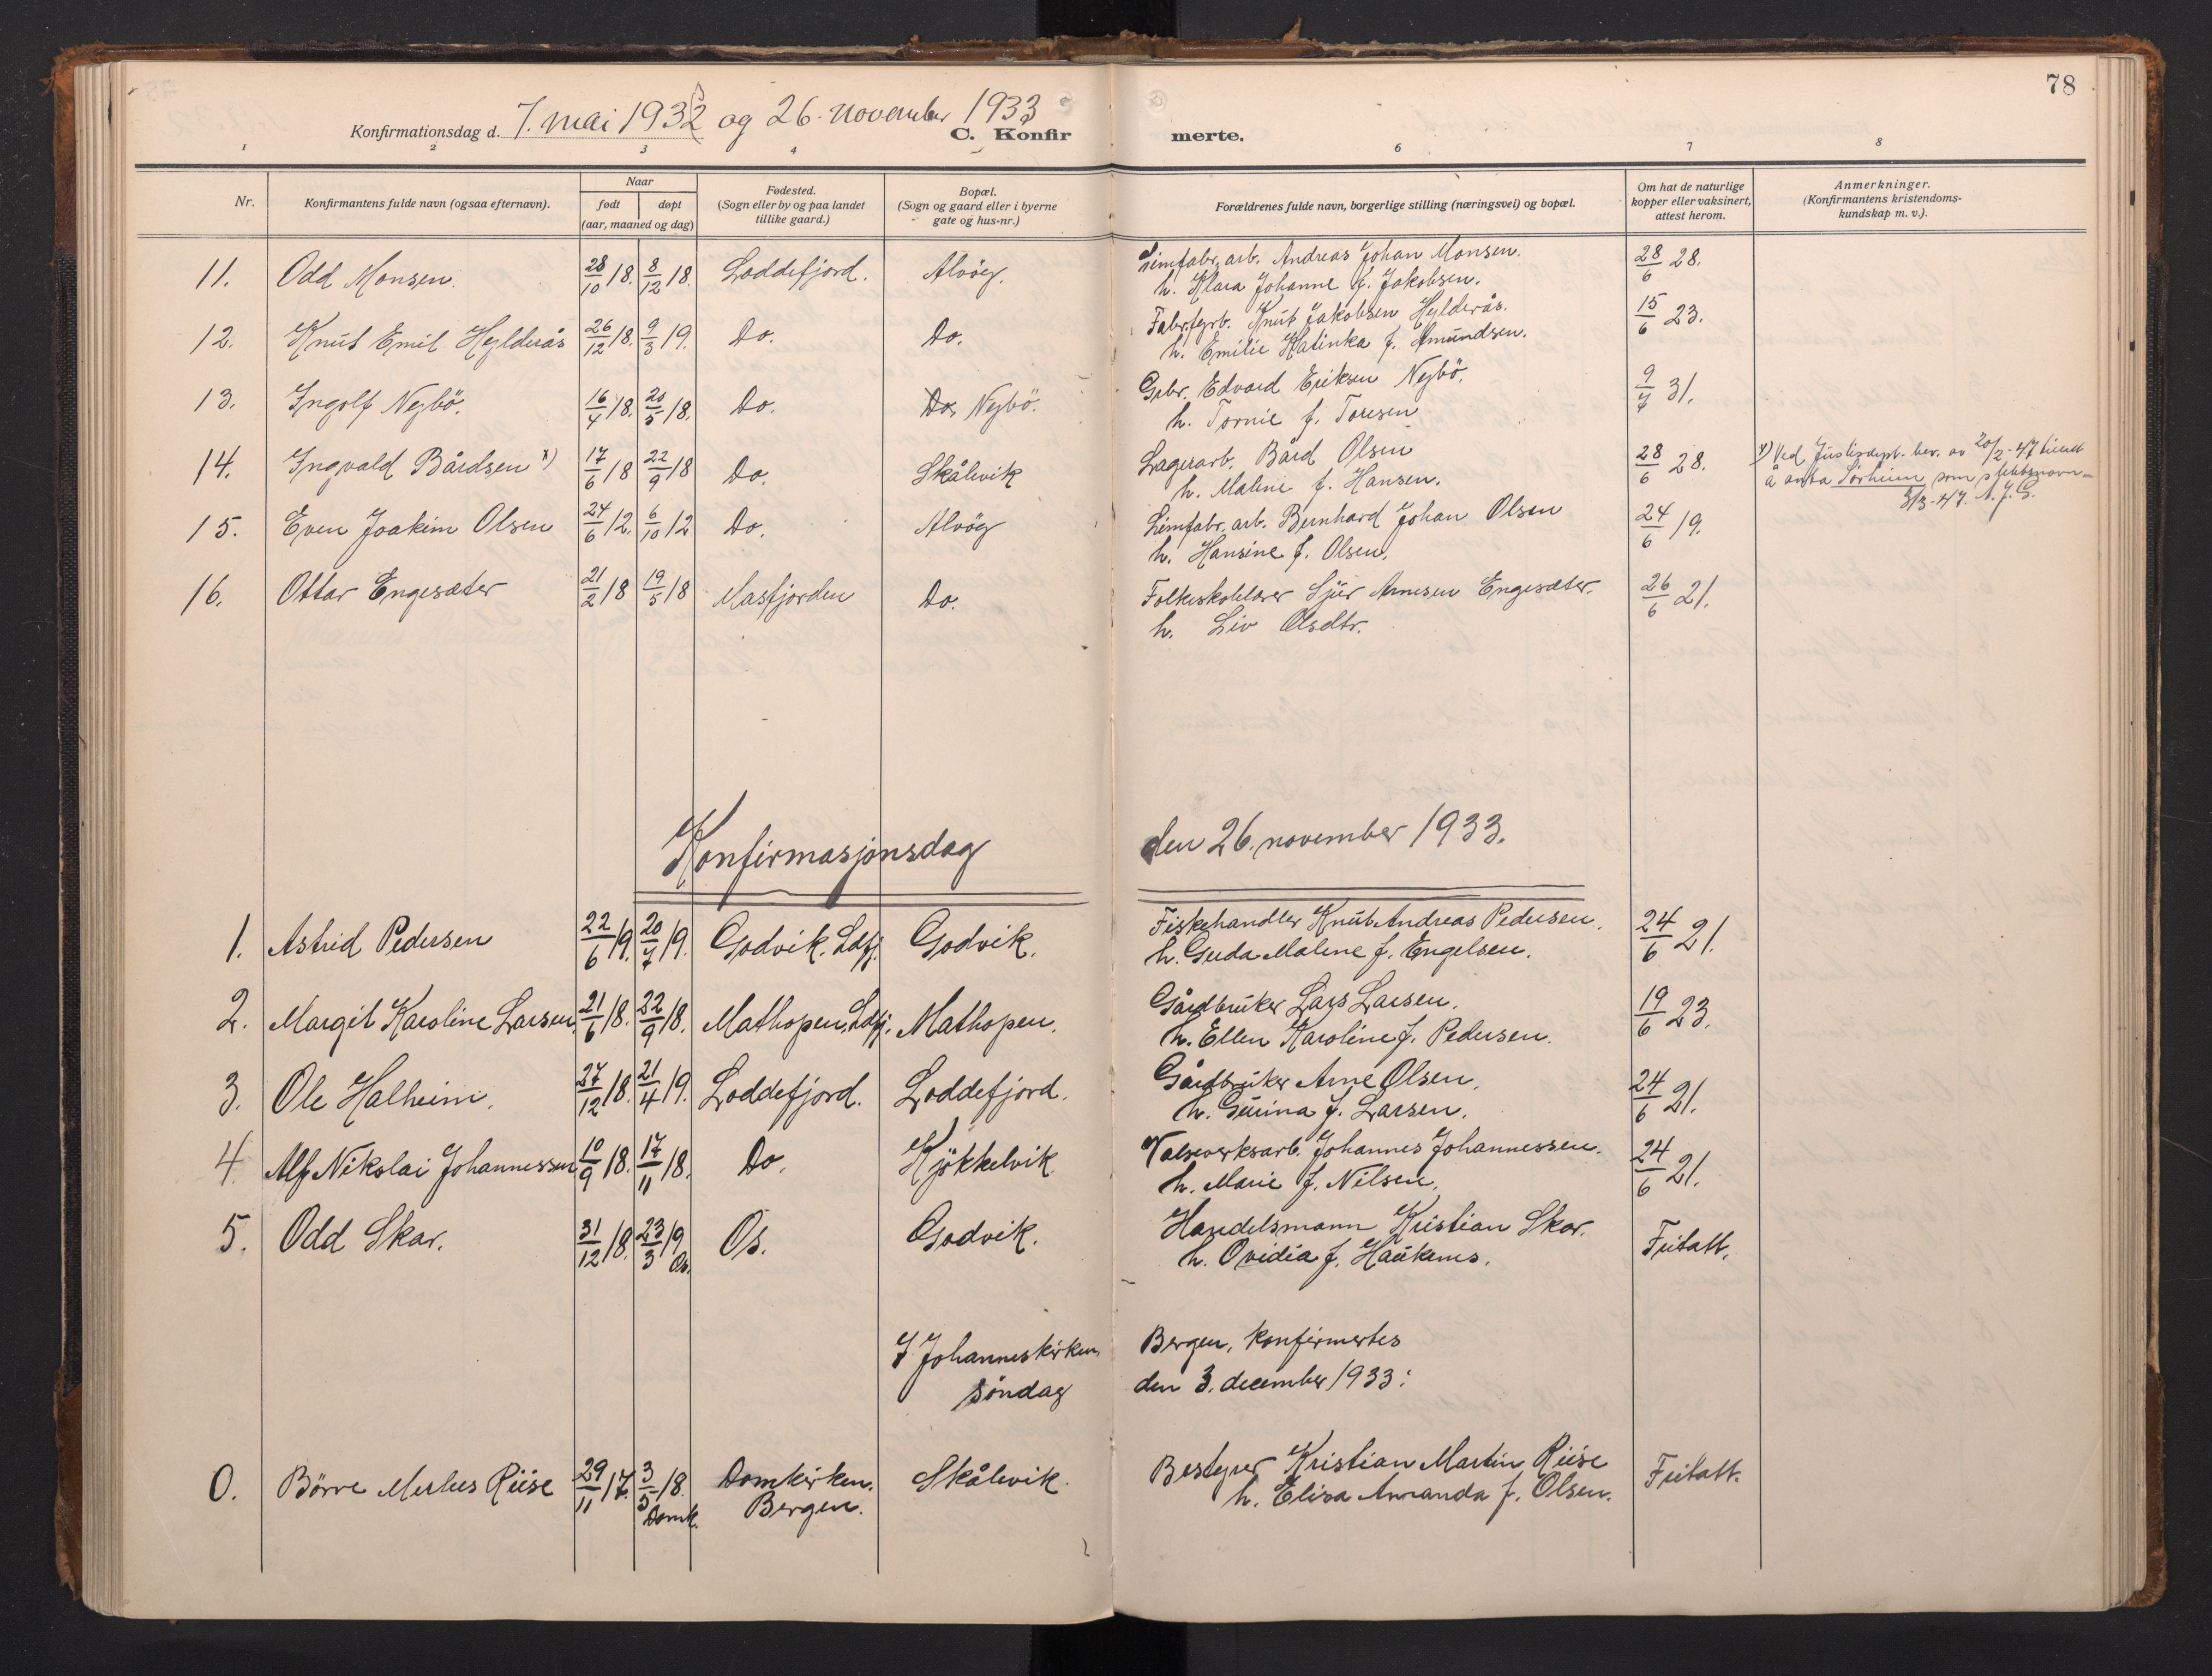 78
Konfirmationsdag d. 7. mai 1933 og 26. november 1933
C. Konfirmerte.
1 2 3 4 6 7 8
Nr.
Konfirmantens fulde navn (ogsaa efternavn).
Naar
født døpt
(aar, maaned og dag)
Fødested.
(Sogn eller by og paa landet
tillike gaard.)
Bopæl.
(Sogn og gaard eller i byerne
gate og hus-nr.)
Forældrenes fulde navn, borgerlige stilling (næringsvei) og bopæl.
Om hat de naturlige
kopper eller vaksinert,
attest herom.
Anmerkninger.
(Konfirmantens kristendoms-
kundskap m. v.).
11. Odd Monsen. 28/10 18. 8/12 18. Loddefjord. Alvöey. Limfabr. arb. Andreas Johan Monsen. 28/6 28.
h. Klara Johanne f. Jakobsen.
12. Knut Emil Hylderås 26/12 18. 9/3 19. Do. Do. Knut Jakobsen Hylderås. 15/6 23.
h. Emilie Katinka f. Amundsen.
13. Ingolf Nejbö. 16/4 18. 20/5 18. Do. Do. Nejbö. Gebr. Edvard Eriksen Nejbö. 9/7 31.
h. Tornie f. Toresen
14. Ingvald Bårdsen x) 17/6 18 22/9 18 Do. Skålevik Lagerarb. Bård Olsen 28/6 28. x) Ved Justisdept. bev. av 20/2-47 tillatt
h. Maline f. Hansen. å anta Sörheim som slektsnavn-
3/3-47. A.J.G.
15. Even Joakim Olsen 24/6 12. 6/10 12 Do. Alvöy Limfabr. arb. Bernhard Johan Olsen 24/6 19.
h. Hansine f. Olsen.
16. Ottar Engesæter 21/2 18 19/5 18 Masfjorden Do. Folkeskolelærer Sjur Arnesen Engesæter. 26/6 21.
h. Liv Olsdtr.
Konfirmasjonsdag den 26. november 1933.
1. Astrid Pedersen 22/6 19. 20/7 19. Godvik. Ldfj. Godvik. Fiskehandler Knut Andreas Pedersen. 24/6 21.
h. Guda Maline f. Engelsen.
2. Margit Karoline Larsen 21/6 18. 22/9 18. Mathopen, Ldfj. Mathopen. Gårdbruker Lars Larsen. 19/6 23.
h. Ellen Karoline f. Pedersen.
3. Ole Halheim. 27/12 18. 21/4 19. Loddefjord. Loddefjord. Gårdbruker Arne Olsen. 24/6 21.
h. Gurina f. Larsen.
4. Alf Nikolai Johannessen 10/9 18. 17/11 18. Do. Kjökkelvik Valseverksarb. Johannes Johannessen. 24/6 21.
h. Marie f. Nilsen.
5. Odd Skar. 31/12 18. 23/3 19 Os. Os. Godvik. Handelsmann Kristian Skar. Fritatt.
h. Ovidia f. Haukenes.
I Johanneskirken, Bergen, konfirmertes
söndag den 3. december 1933:
0. Börre Riise 29/11 17. 3/5 18. Domk. Domkirken. Bergen. Skålevik. Bestyrer Kristian Martin Riise Fritatt.
h. Elisa Amanda f. Olsen.